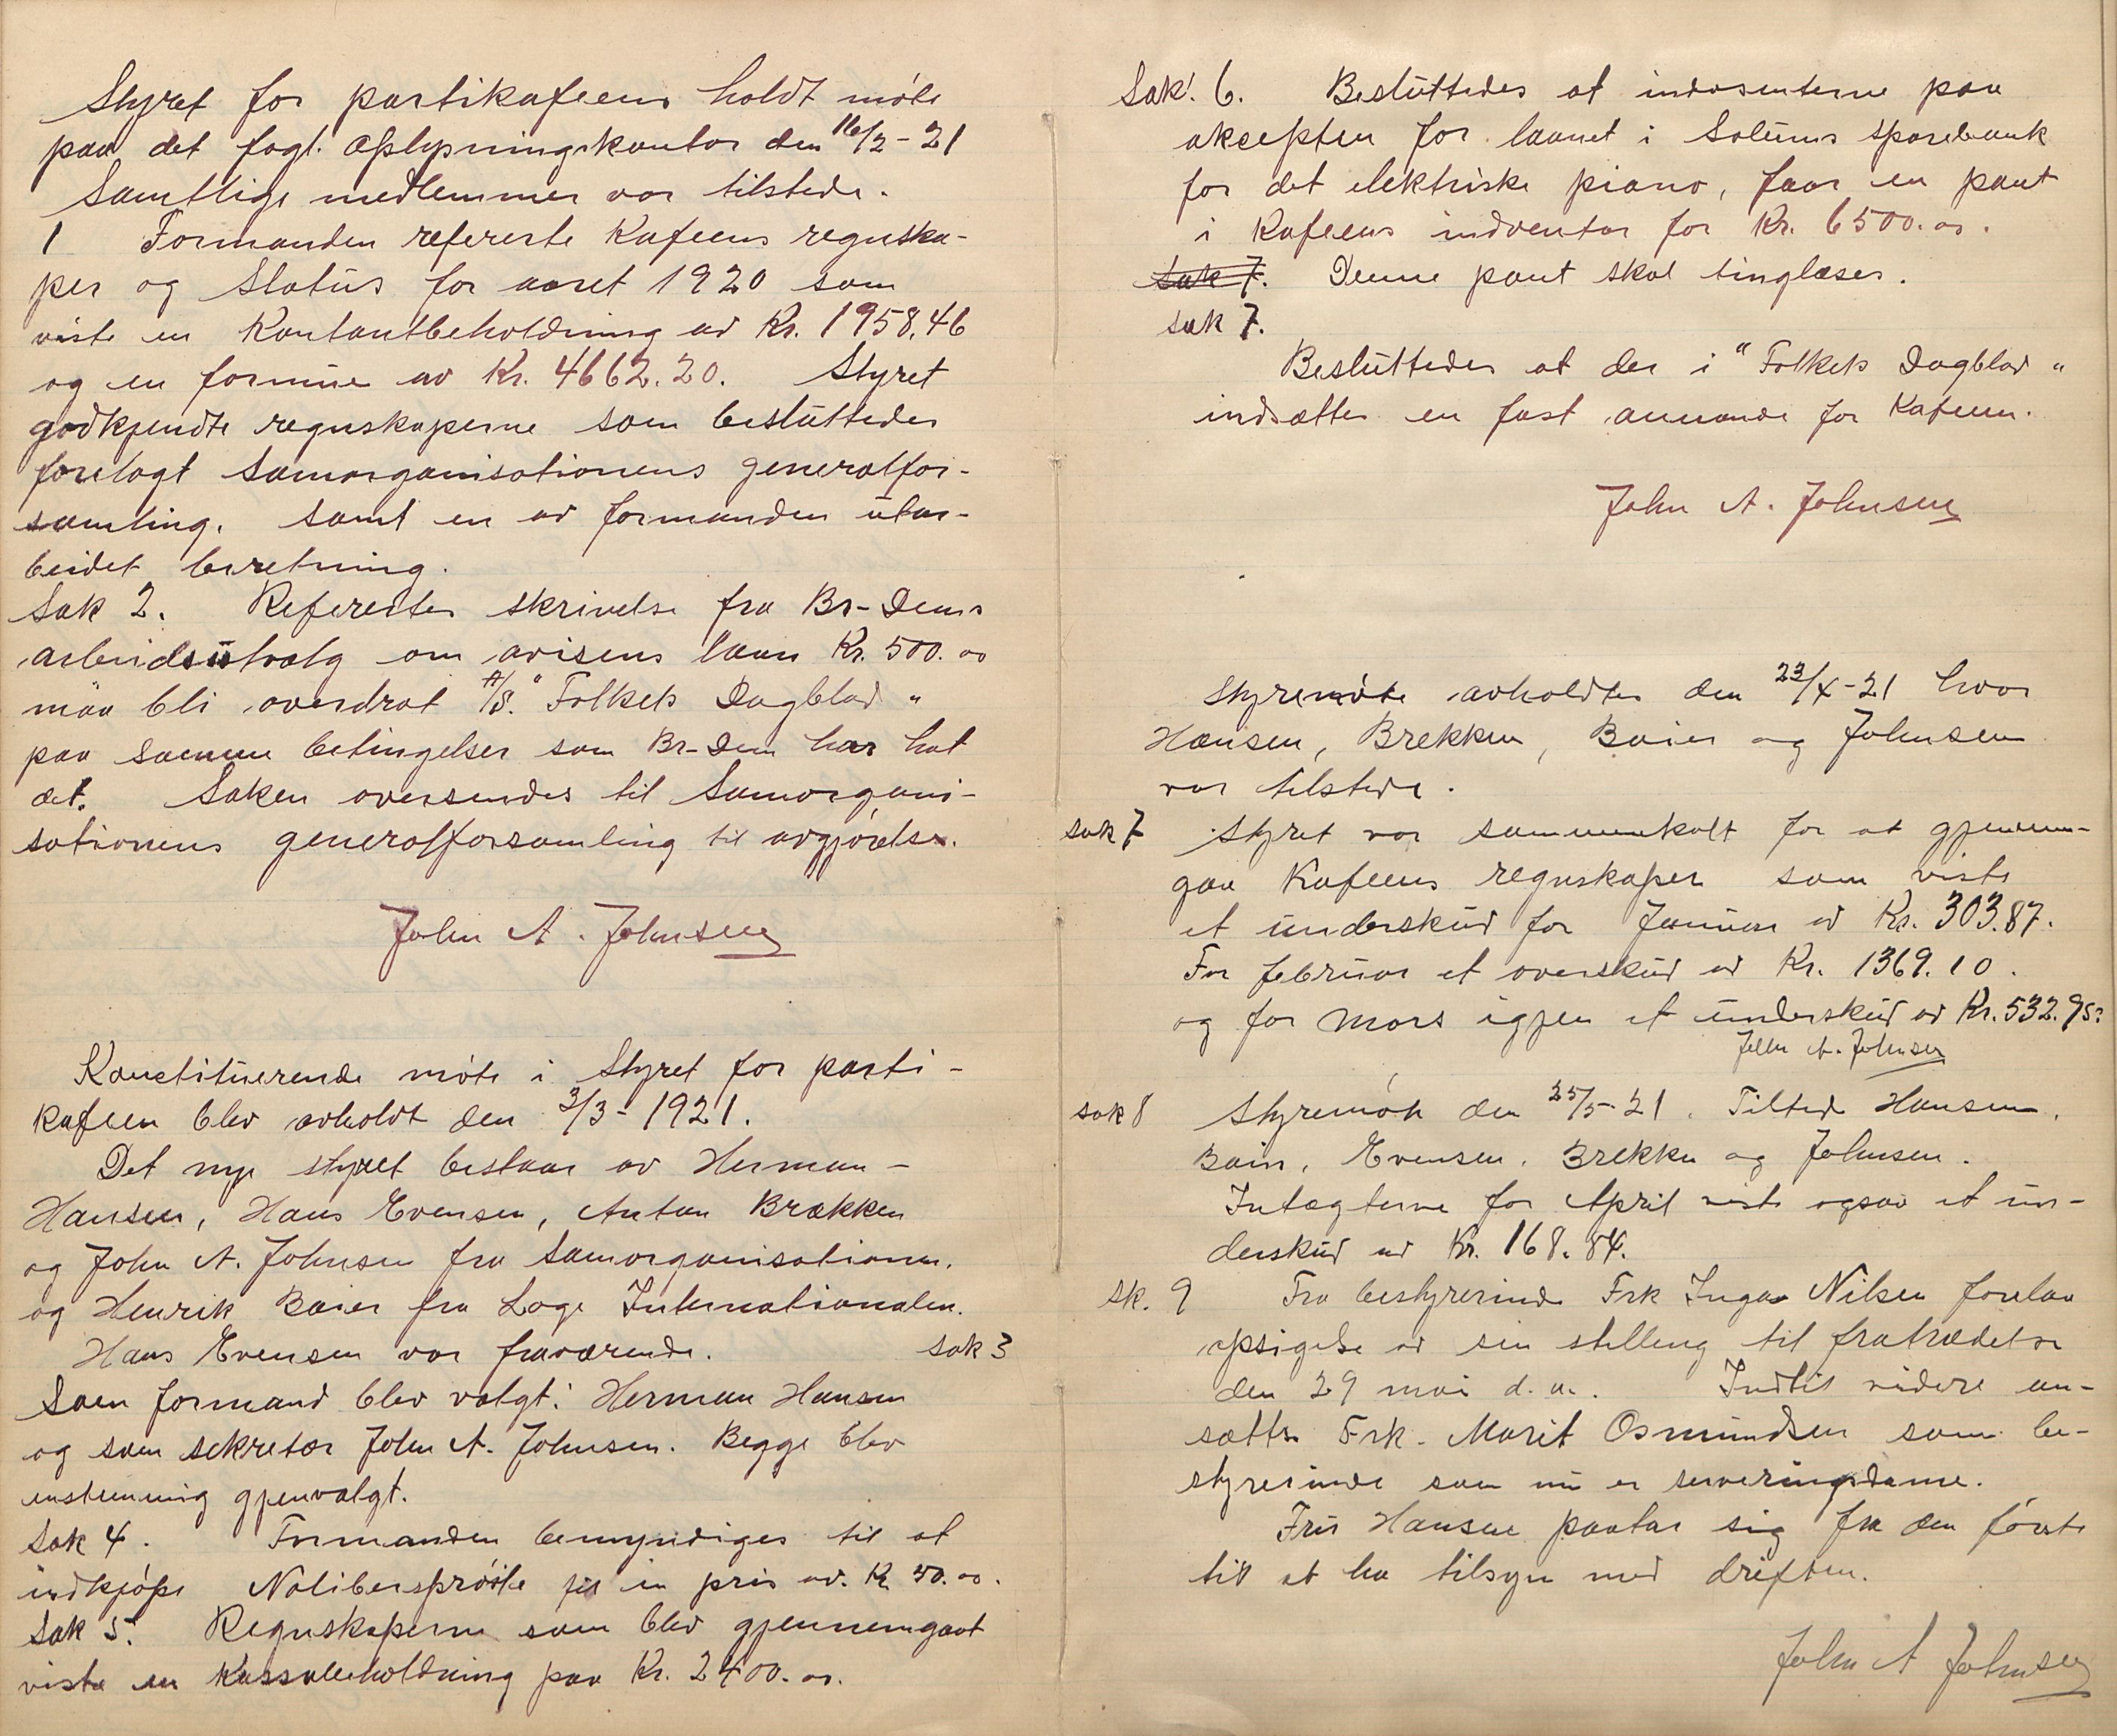 Styret for partikafeens holdt møte
paa det fagl. Oplysningskontor den 16/2-21
Samtlige medlemmer var tilstede.
1 Formanden refererte Kafeens regnska-
per og Status for aaret 1920 som
viste en Kontantbeholdning av Kr. 1958,46
og en formue av Kr. 4662.20. Styret
godkjendte regnskaperne som besluttedes
forelagt Samorganisationens generalfor-
samling, samt en av formanden utar-
beidet beretning.
Sak 2. Refererter skrivelse fra Br-Dems
arbeidsutvalg om avisens laan Kr. 500.00
maa bli overdrat A/S. "Folkets Dagblad"
paa samme betingelser som Br-Dem har hat
det. Saken oversendes til Samorgani-
sationens generalforsamling til avgjørelse.
John A. Johnsen
Konstituerende møte i Styret for parti-
kafeen blev avholdt den 3/3-1921.
Det nye styret bestaar av Herman-
Hansen, Hans Evensen, Anton Brækken
og John A. Johnsen fra Samorganisationen.
og Henrik Baier fra Loge Internationalen.
Hans Evensen var fraværende. sak 3
Som formand blev valgt: Herman Hansen
og som sekretær John A. Johnsen. Begge blev
enstemmig gjenvalgt.
Sak 4. Formanden bemyndiges til at
indkjøpe til en pris av. Kr. 50.00.
Sak 5. Regnskaperne som blev gjennemgaat
viste en Kassabeholdning paa Kr. 2400.00.
Sak. 6. Besluttedes at indosenterne paa
aksepten for laanet i Solums sparebank
for det elektriske piano, faar en pant
i Kafeens indventar for Kr. 6500.00.
Sak 7. Denne pant skal tinglæses.
sak 7.
Besluttedes at der i "Folkets Dagblad"
indsættes en fast annonse for Kafeen.
John A. Johnsen
Styremøte avholdtes den 23/4-21 hvor
Hansen, Brekken, Baier og Johnsen
var tilstede.
sak 7 Styret var sammenkalt for at gjennem-
gaa Kafeens regnskaper som viste
et underskud for Januar av Kr. 303.87.
For februar et overskud av Kr. 1369.10.
og for Mars igjen et underskud av Kr. 532.95.
John A. Johnsen
sak 8 Styremøte den 25/5-21. Tilsted Hansen,
Baier, Evensen, Brekken og Johnsen.
Intægterne for April viste ogsaa et un-
derskud av Kr. 168.84.
sk. 9 Fra bestyrerinde Frk Inga Nilsen forelaa
opsigelse av sin stilling til fratrædelse
den 29 mai d.a. Indtil videre an-
sættes Frk. Marit Osmundsen som be-
styrerinde som nu er serveringsdame.
Fru Hansen paatar sig fra den første
tid at ha tilsyn med driften.
John A Johnsen